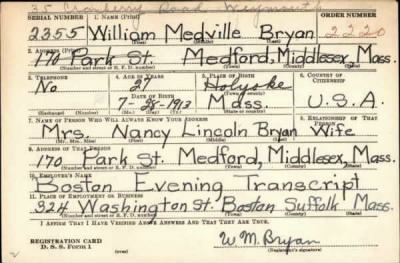 35 Cranberry Road Weymouth
SERIAL NUMBER 1. NAME (Print) ORDER NUMBER
2355 William Medville Bryan 2220
(First) (Middle) (Last)
2. ADDRESS (Print)
170 Park St. Medford, Middlesex, Mass.
(Number and street or R. F. D. number) (Town) (County) (State)
3. TELEPHONE 4. AGE IN YEARS 5. PLACE OF BIRTH 6. COUNTRY OF CITIZENSHIP
No 27 Holyoke
DATE OF BIRTH
7-28-1913 Mass. U.S.A.
(Exchange) (Number) (Mo.) (Day) (Yr.) (State or country)
7. NAME OF PERSON WHO WILL ALWAYS KNOW YOUR ADDRESS 8. RELATIONSHIP OF THAT PERSON
Mrs. Nancy Lincoln Bryan Wife
(Mr., Mrs., Miss) (First) (Middle) (Last)
9. ADDRESS OF THAT PERSON
170 Park St. Medford, Middlesex, Mass.
(Number and street or R. F. D. number) (Town) (County) (State)
10. EMPLOYER'S NAME
Boston Evening Transcript
11. PLACE OF EMPLOYMENT OR BUSINESS
324 Washington St. Boston Suffolk Mass.
(Number and street or R. F. D. number) (Town) (County) (State)
I AFFIRM THAT I HAVE VERIFIED ABOVE ANSWERS AND THAT THEY ARE TRUE.
REGISTRATION CARD
D. S. S. Form 1 (over) W.M. Bryan
(Registrant's signature)